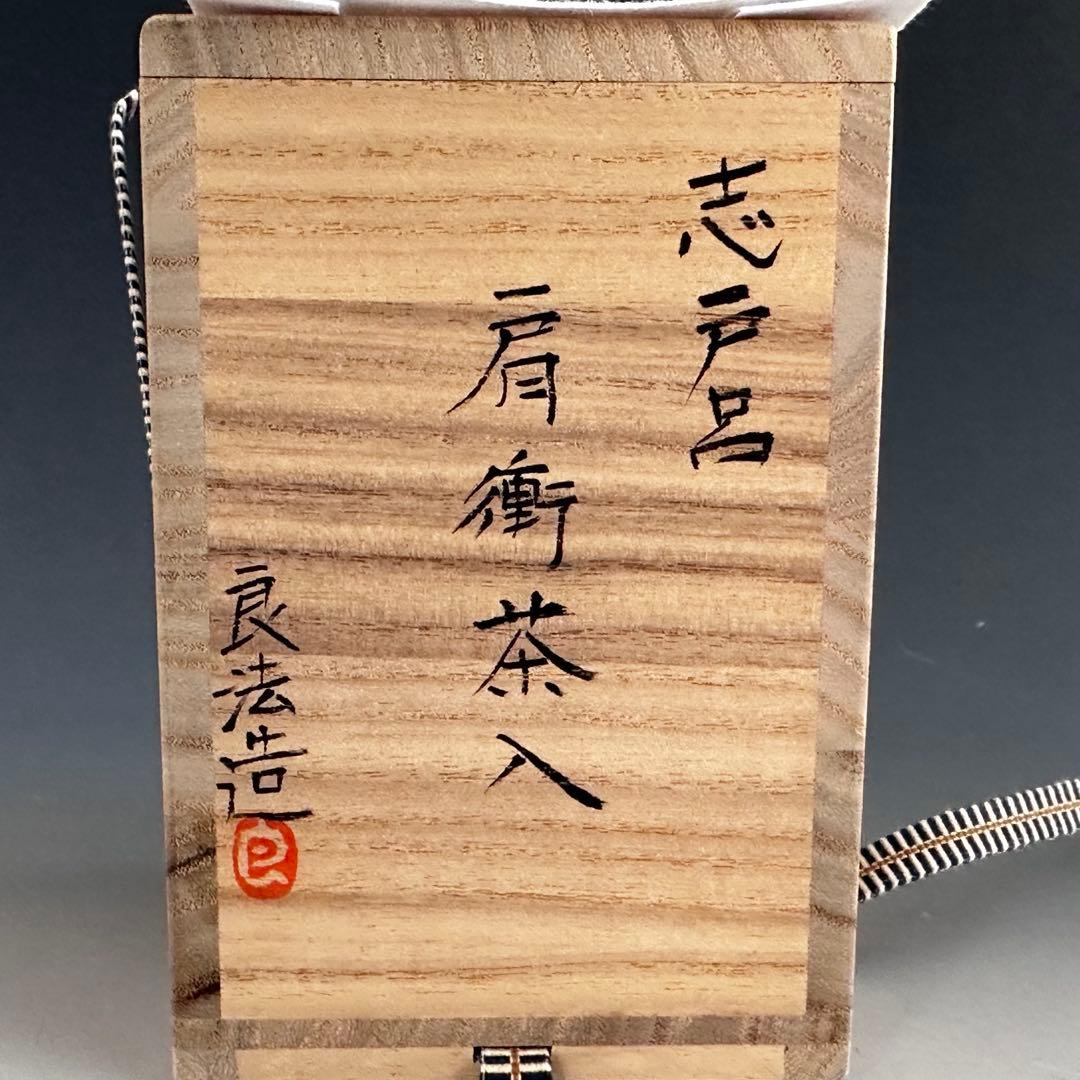 志戸呂
肩衝茶入
良法造